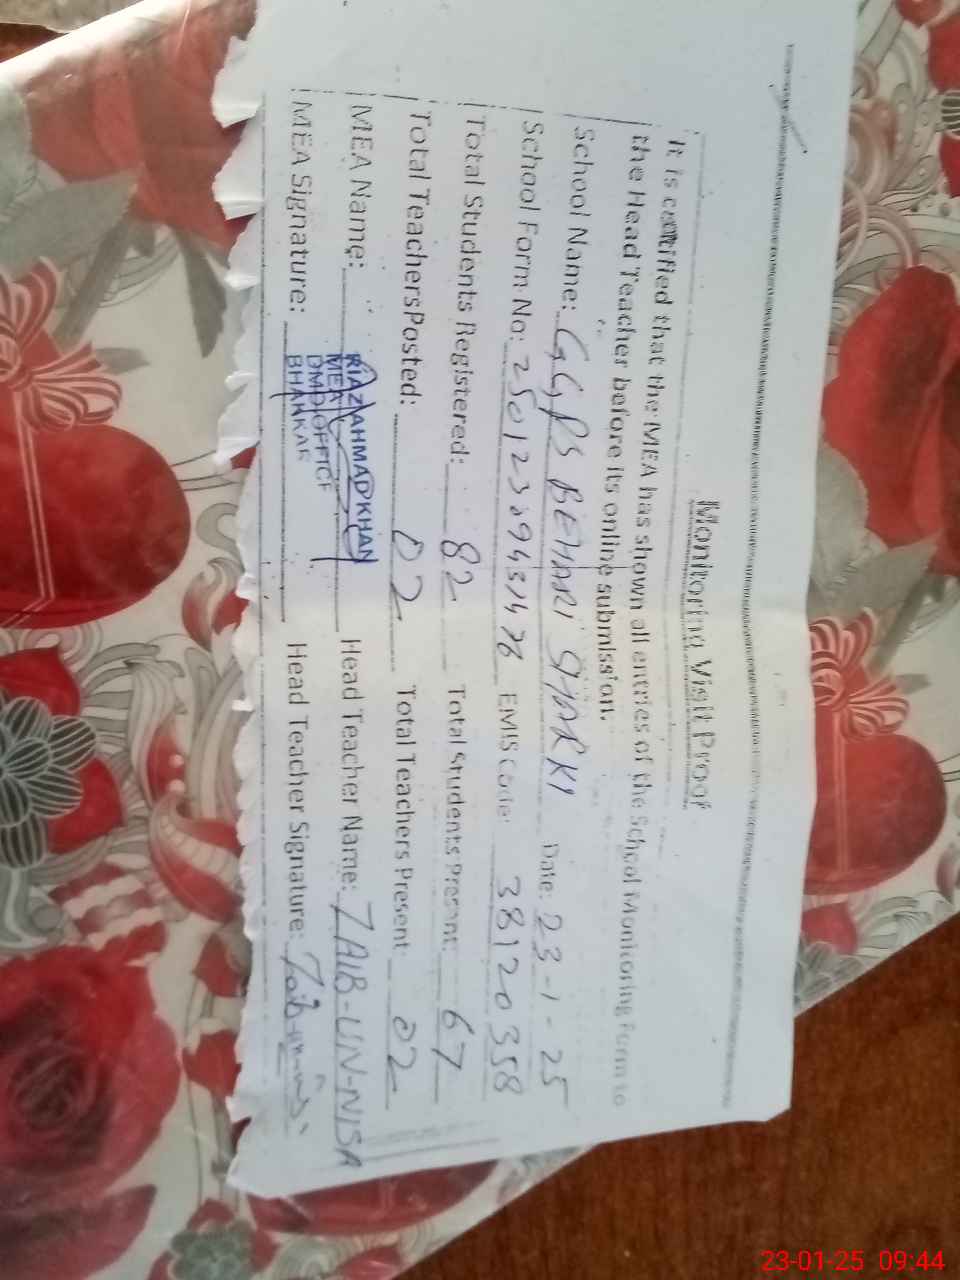 Monitoring Visit Proof
It is certified that the MEA has shown all entries of the School Monitoring Form to
the Head Teacher before its online submission.
School Name: GGPS BEHARI SHARKI Date: 23-1-25
School Form No: EMIS Code: 38120358
Total Students Registered: 82 Total Students Present: 67
Total Teachers Posted: 02 Total Teachers Present: 02
MEA Name: RIAZ AHMAD KHAN Head Teacher Name: ZAIB-UN-NISA
MEA
DMO OFFICE
MEA Signature: BHAKKAR Head Teacher Signature:
23-01-25 09:44